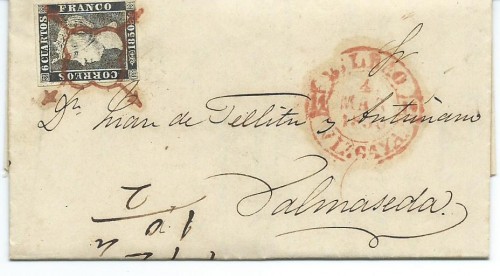 FRANCO
6 CUARTOS
1850
CORREOS
BILBAO
4
MAY
VIZCAYA
Sr
Dn Juan de Tellitu y Antuñano
Valmaseda.